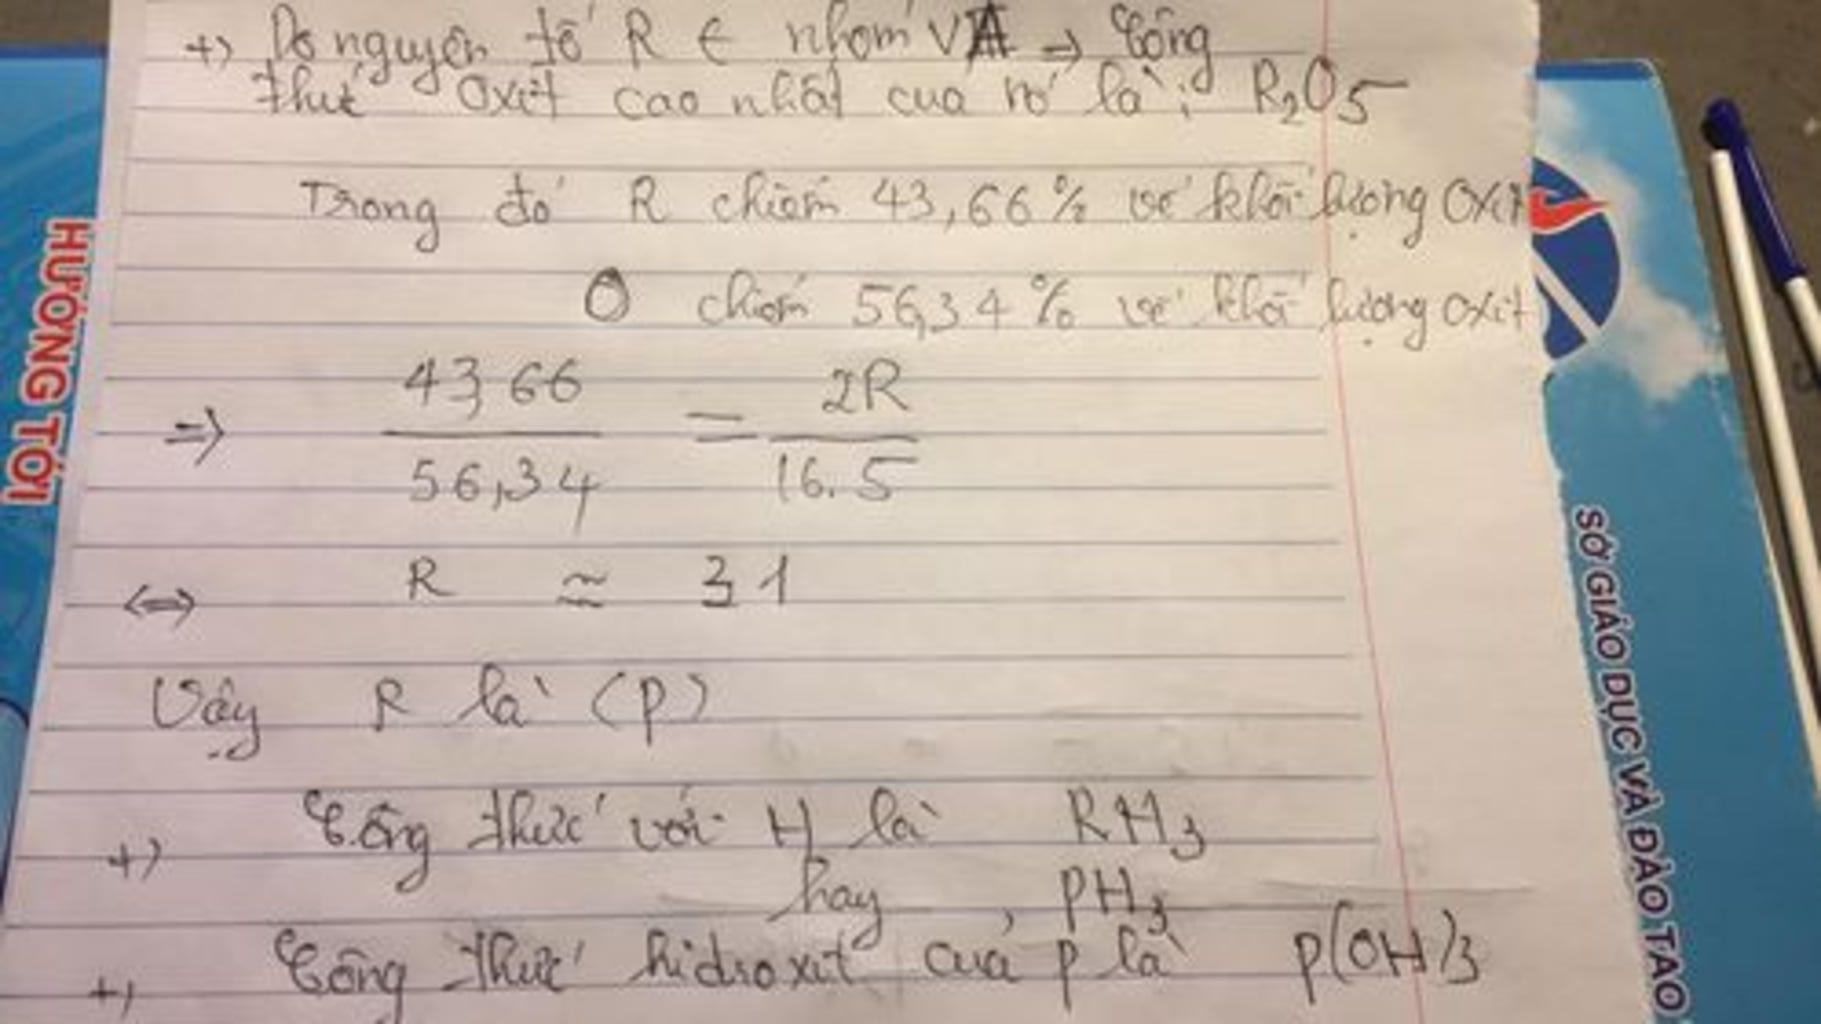 +) Do nguyên tố R ∈ nhóm VA => Công
thức Oxit cao nhất của nó là: R₂O5
Trong đó R chiếm 43,66% về khối lượng Oxit
O chiếm 56,34% về khối lượng oxit
=> 43,66 / 56,34 = 2R / 16.5
<=> R ≈ 31
Vậy R là (P)
+) Công thức với H là RH3
hay PH3
+) Công thức hidroxit của P là P(OH)3
HƯỚNG TỚI
SỞ GIÁO DỤC VÀ ĐÀO TẠO